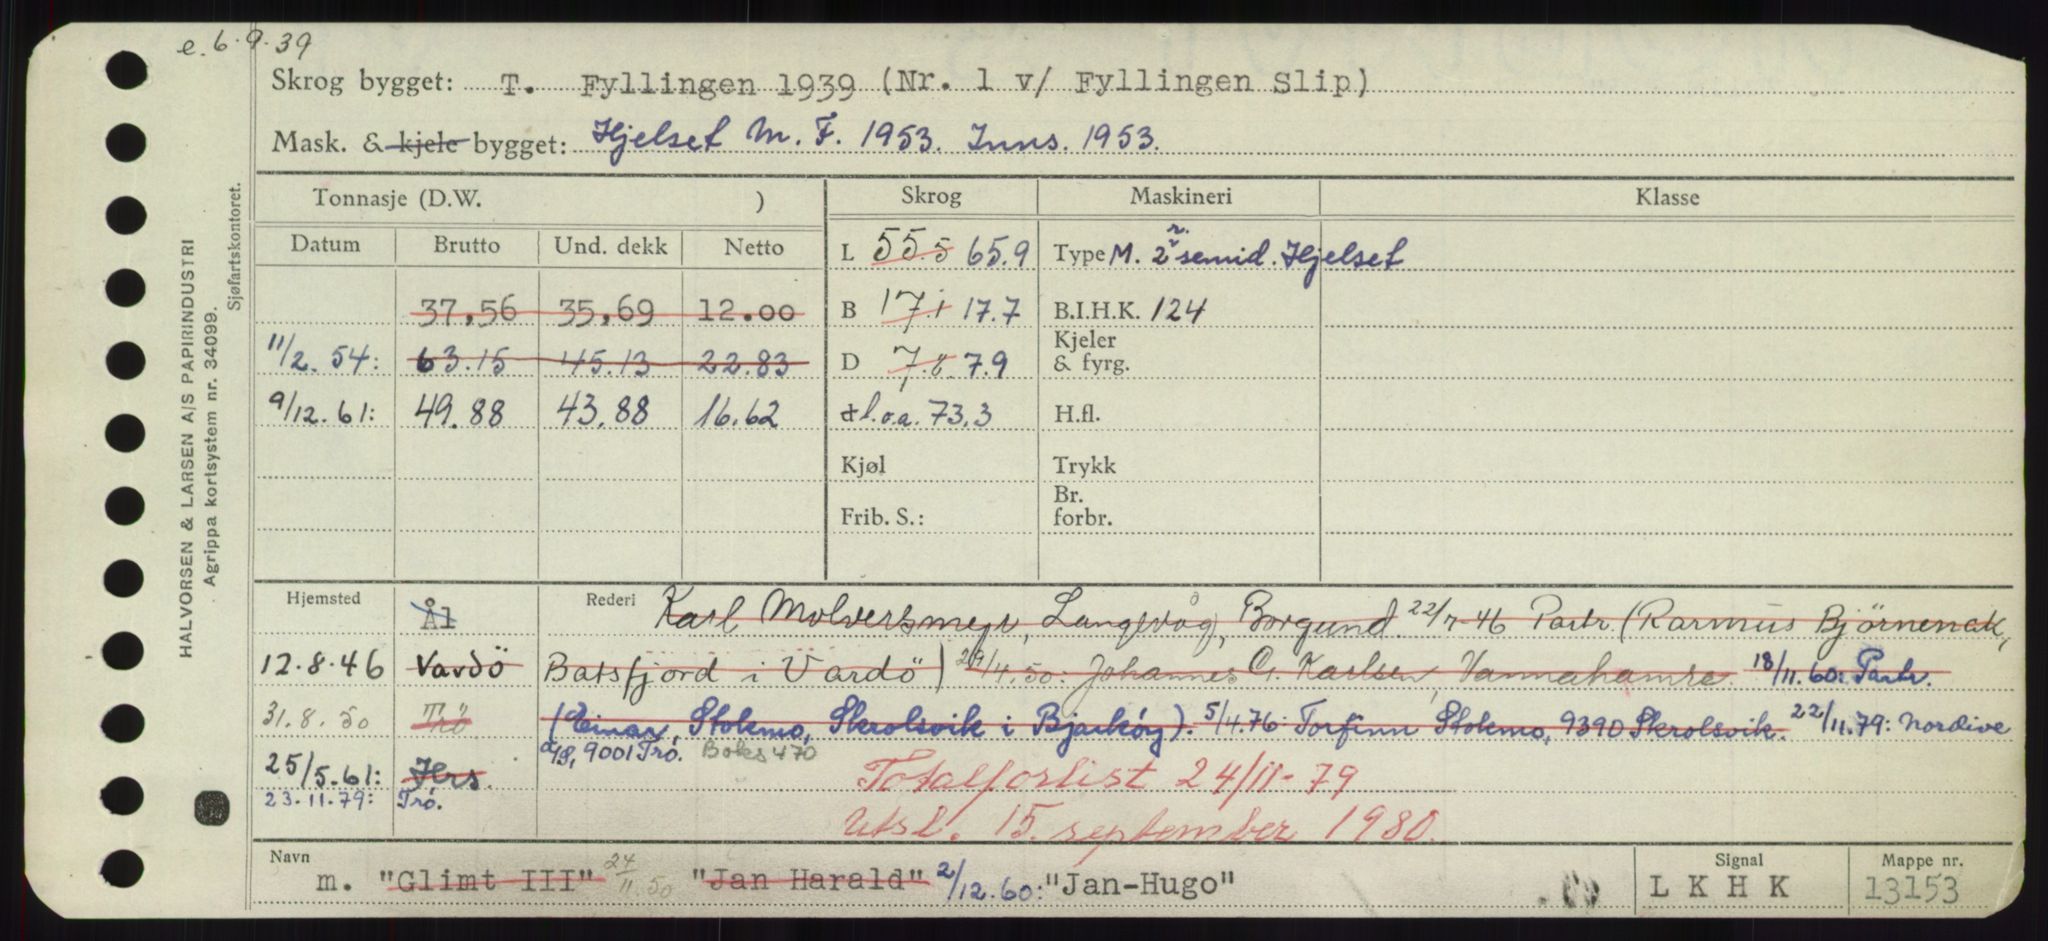 e. 6.9.39
Skrog bygget: T. Fyllingen 1939 (Nr. 1 v/ Fyllingen Slip)
Mask. & kjele bygget: Hjelset M. F. 1953. Inns. 1953.
HALVORSEN & LARSEN A/S PAPIRINDUSTRI
Agrippa kortsystem nr. 34099.
Sjøfartskontoret.
Tonnasje (D.W. ) Skrog Maskineri Klasse
Datum Brutto Und. dekk Netto
L 55.5 65.9 Type M. 2 r. semid. Hjelset
37,56 35,69 12.00 B 17.1 17.7 B.I.H.K. 124
11/2.54: 63.15 45.13 22.83 D 7.8 7.9 Kjeler & fyrg.
9/12.61: 49.88 43.88 16.62 l.o.a. 73.3 H.fl.
Kjøl Trykk
Frib. S.: Br. forbr.
Hjemsted Ål Rederi Karl Molversmyr, Langevåg, Borgund. 22/7-46 Partr. (Rasmus Bjørnenak,
12.8.46 Vardö Båtsfjord i Vardö) 29/4.50: Johannes C. Karlsen, Vannahamre. 18/11.60: Partr.
31.8.50 Trö (Einar Stokmo, Skrolsvik i Bjarköy). 5/4.76: Torfinn Stokmo, 9390 Skrolsvik. 22/11.79: Nordive
25/5.61: Hrs. a/s, 9001 Trø. Boks 470 Totalforlist 24/11-79
23.11.79: Trø.
Utsl. 15. september 1980.
Navn m. "Glimt III" 24/11.50 "Jan Harald" 2/12.60: "Jan-Hugo" Signal L K H K Mappe nr. 13153